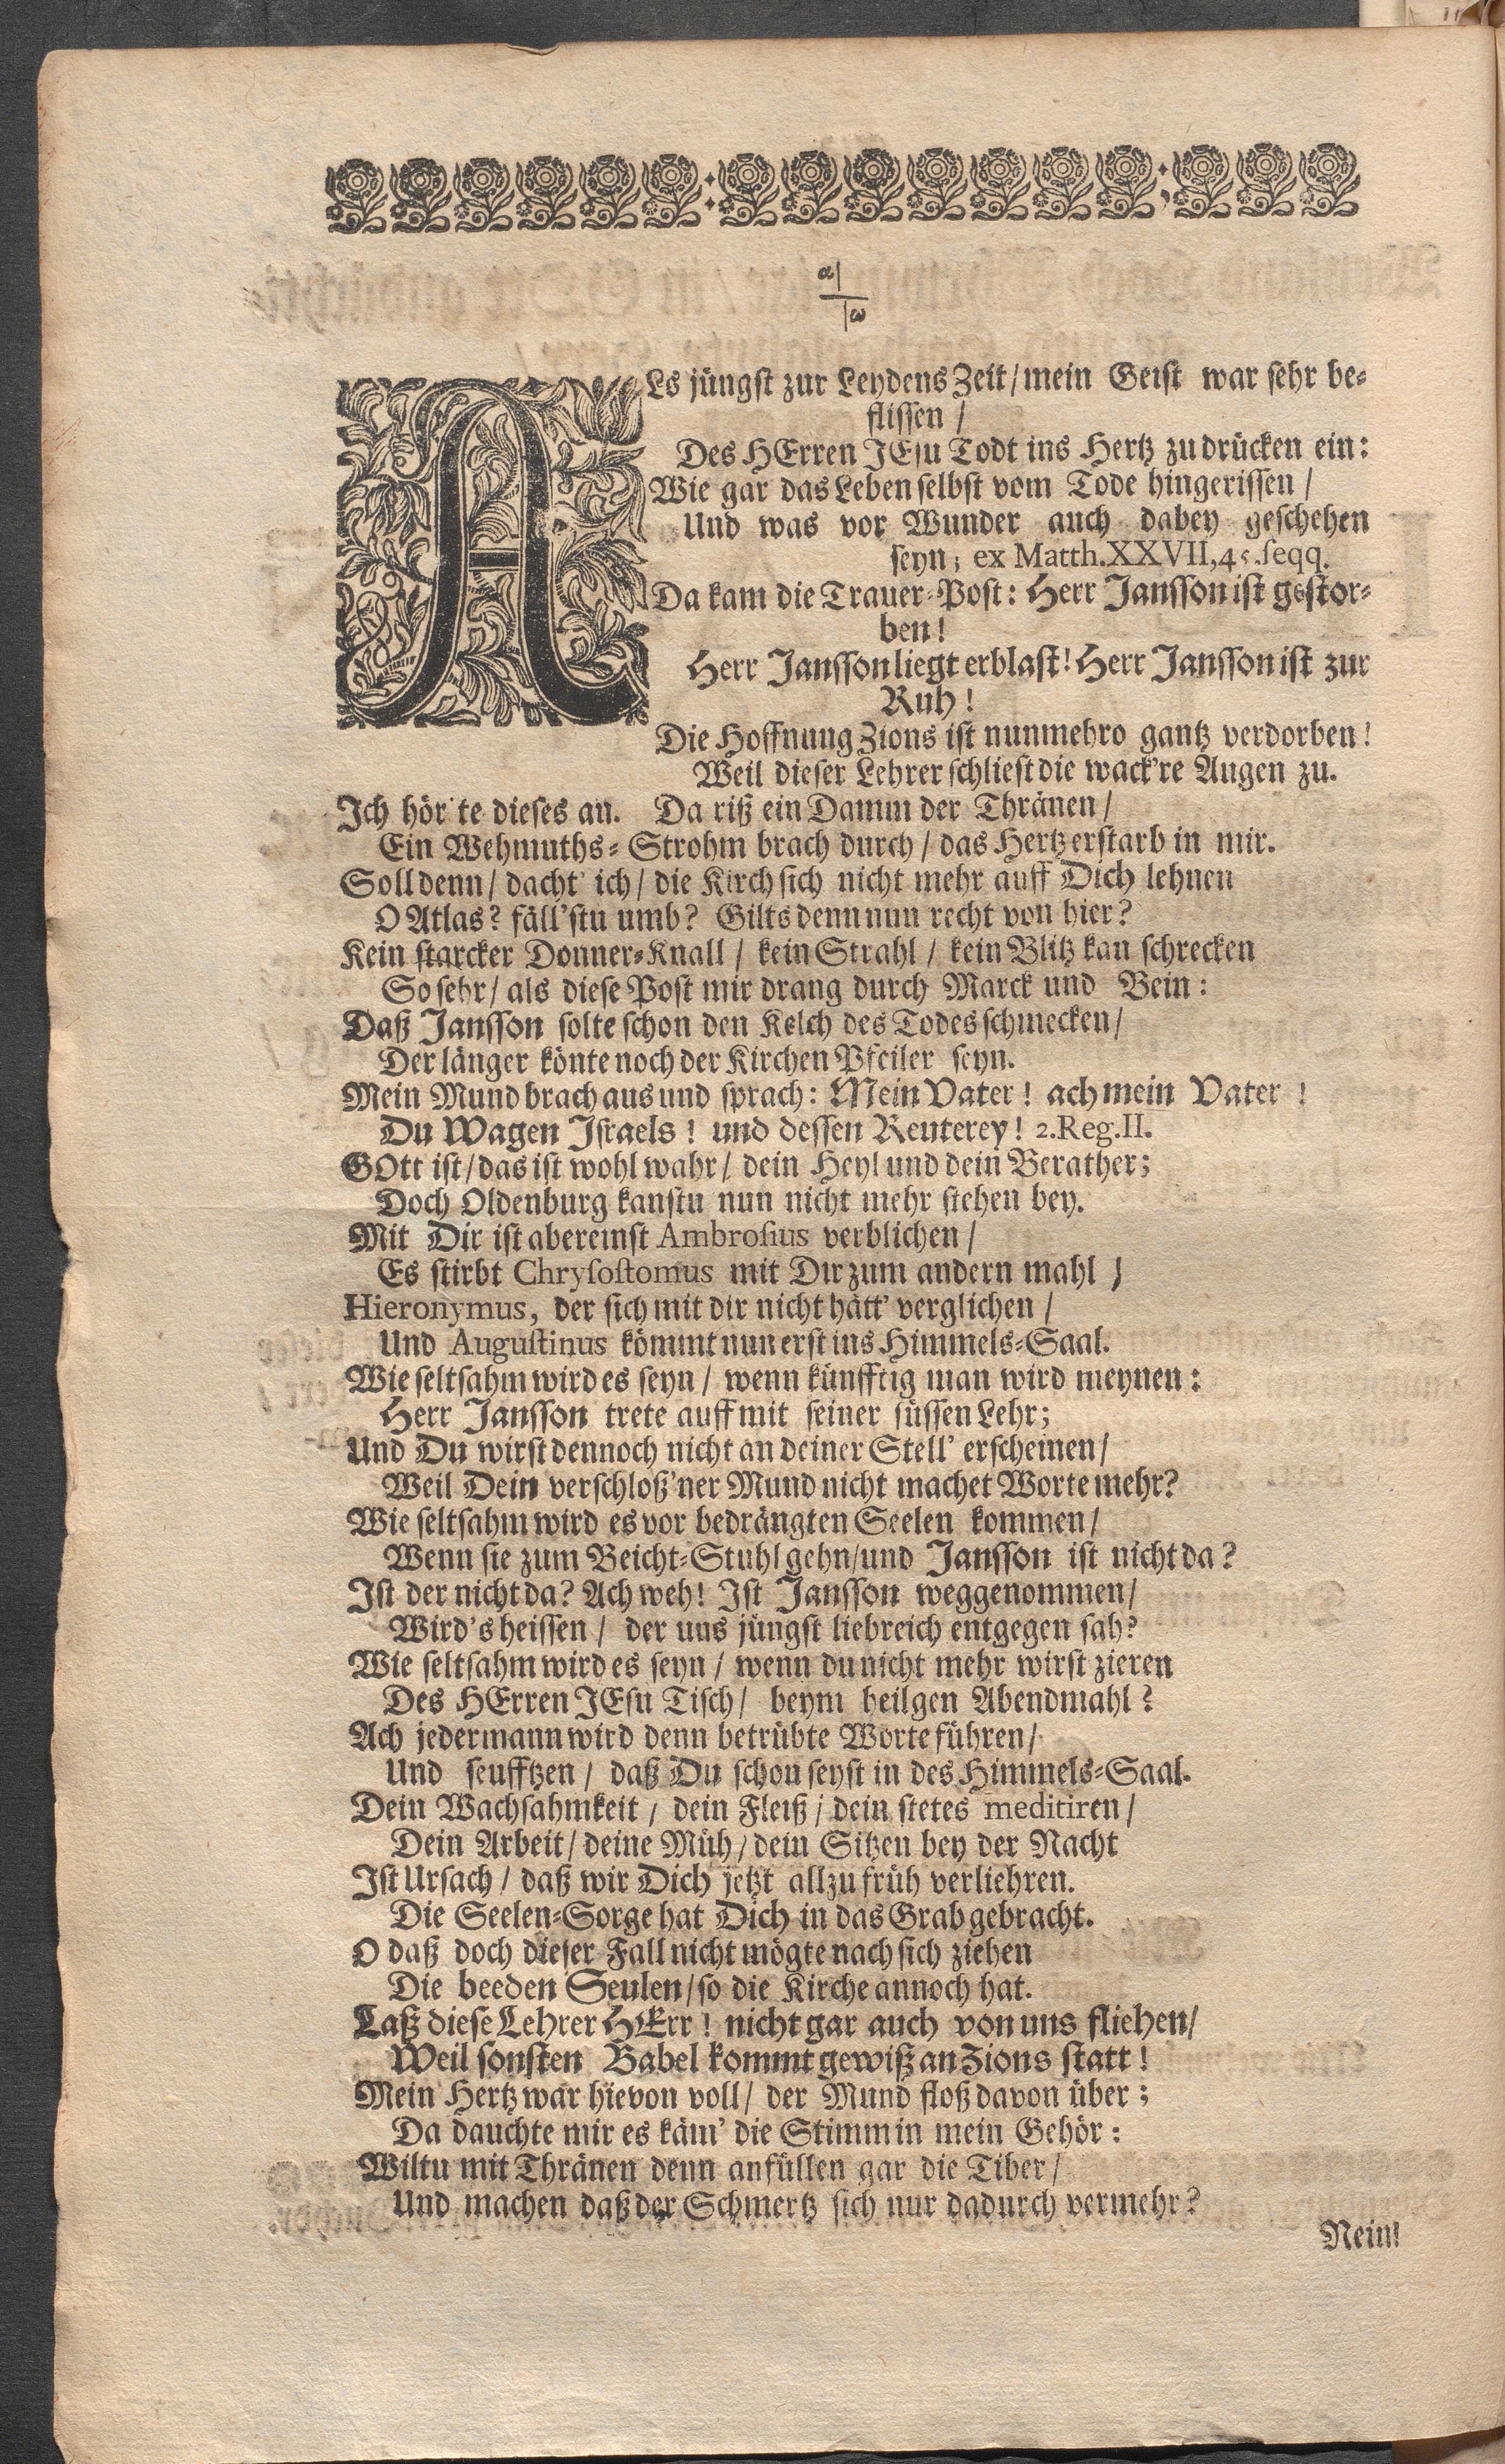 α
ω
ALs jüngst zur Leydens Zeit/ mein Geist war sehr be-
flissen /
Des HErren JEsu Todt ins Hertz zu drücken ein:
Wie gar das Leben selbst vom Tode hingerissen /
Und was vor Wunder auch dabey geschehen
seyn; ex Matth. XXVII, 45. seqq.
Da kam die Trauer-Post: Herr Jansson ist gestor-
ben!
Herr Jansson liegt erblast! Herr Jansson ist zur
Ruh!
Die Hoffnung Zions ist nunmehro gantz verdorben!
Weil dieser Lehrer schliest die wack're Augen zu.
Ich hör'te dieses an. Da riß ein Damm der Thränen /
Ein Wehmuths-Strohm brach durch / das Hertz erstarb in mir.
Soll denn / dacht' ich / die Kirch sich nicht mehr auff Dich lehnen
O Atlas? fäll'stu umb? Gilts denn nun recht von hier?
Kein starcker Donner-Knall / kein Strahl / kein Blitz kan schrecken
So sehr / als diese Post mir drang durch Marck und Bein:
Daß Jansson solte schon den Kelch des Todes schmecken /
Der länger könte noch der Kirchen Pfeiler seyn.
Mein Mund brach aus und sprach: Mein Vater! ach mein Vater!
Du Wagen Israels! und dessen Reuterey! 2. Reg. II.
GOtt ist / das ist wohl wahr / dein Heyl und dein Berather;
Doch Oldenburg kanstu nun nicht mehr stehen bey.
Mit Dir ist abereinst Ambrosius verblichen /
Es stirbt Chrysostomus mit Dir zum andern mahl;
Hieronymus, der sich mit dir nicht hätt' verglichen /
Und Augustinus kömmt nun erst ins Himmels-Saal.
Wie seltsahm wird es seyn / wenn künfftig man wird meynen:
Herr Jansson trete auff mit seiner süssen Lehr;
Und Du wirst dennoch nicht an deiner Stell' erscheinen /
Weil Dein verschloß'ner Mund nicht machet Worte mehr?
Wie seltsahm wird es vor bedrängten Seelen kommen /
Wenn sie zum Beicht-Stuhl gehn / und Jansson ist nicht da?
Ist der nicht da? Ach weh! Ist Jansson weggenommen /
Wird's heissen / der uns jüngst liebreich entgegen sah?
Wie seltsahm wird es seyn / wenn du nicht mehr wirst zieren
Des HErren JEsu Tisch / beym heilgen Abendmahl?
Ach jedermann wird denn betrübte Worte führen /
Und seufftzen / daß Du schon seyst in des Himmels-Saal.
Dein Wachsahmkeit / dein Fleiß / dein stetes meditiren /
Dein Arbeit / deine Müh / dein Sitzen bey der Nacht
Ist Ursach / daß wir Dich jetzt allzu früh verliehren.
Die Seelen-Sorge hat Dich in das Grab gebracht.
O daß doch dieser Fall nicht mögte nach sich ziehen
Die beeden Seulen / so die Kirche annoch hat.
Laß diese Lehrer HErr! nicht gar auch von uns fliehen /
Weil sonsten Babel kommt gewiß an Zions statt!
Mein Hertz war hievon voll / der Mund floß davon über;
Da dauchte mir es käm' die Stimm in mein Gehör:
Wiltu mit Thränen denn anfüllen gar die Tiber /
Und machen daß der Schmertz sich nur dadurch vermehr?
Nein!